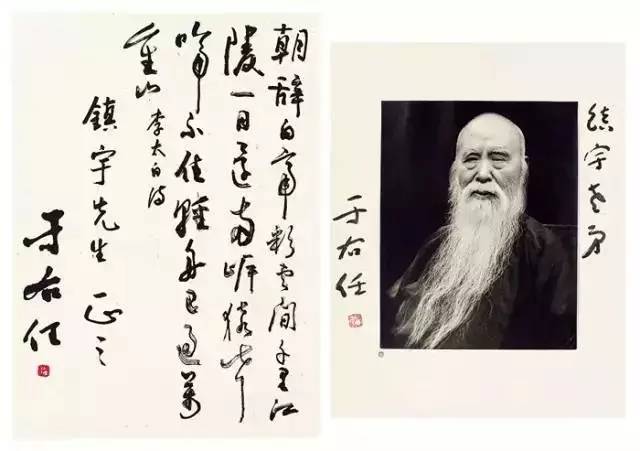 朝辭白帝彩雲間千里江
陵一日還兩岸猿聲
啼不住輕舟已過萬
重山 李太白詩
鎮宇先生 正之
于右任
鎮宇老弟
于右任